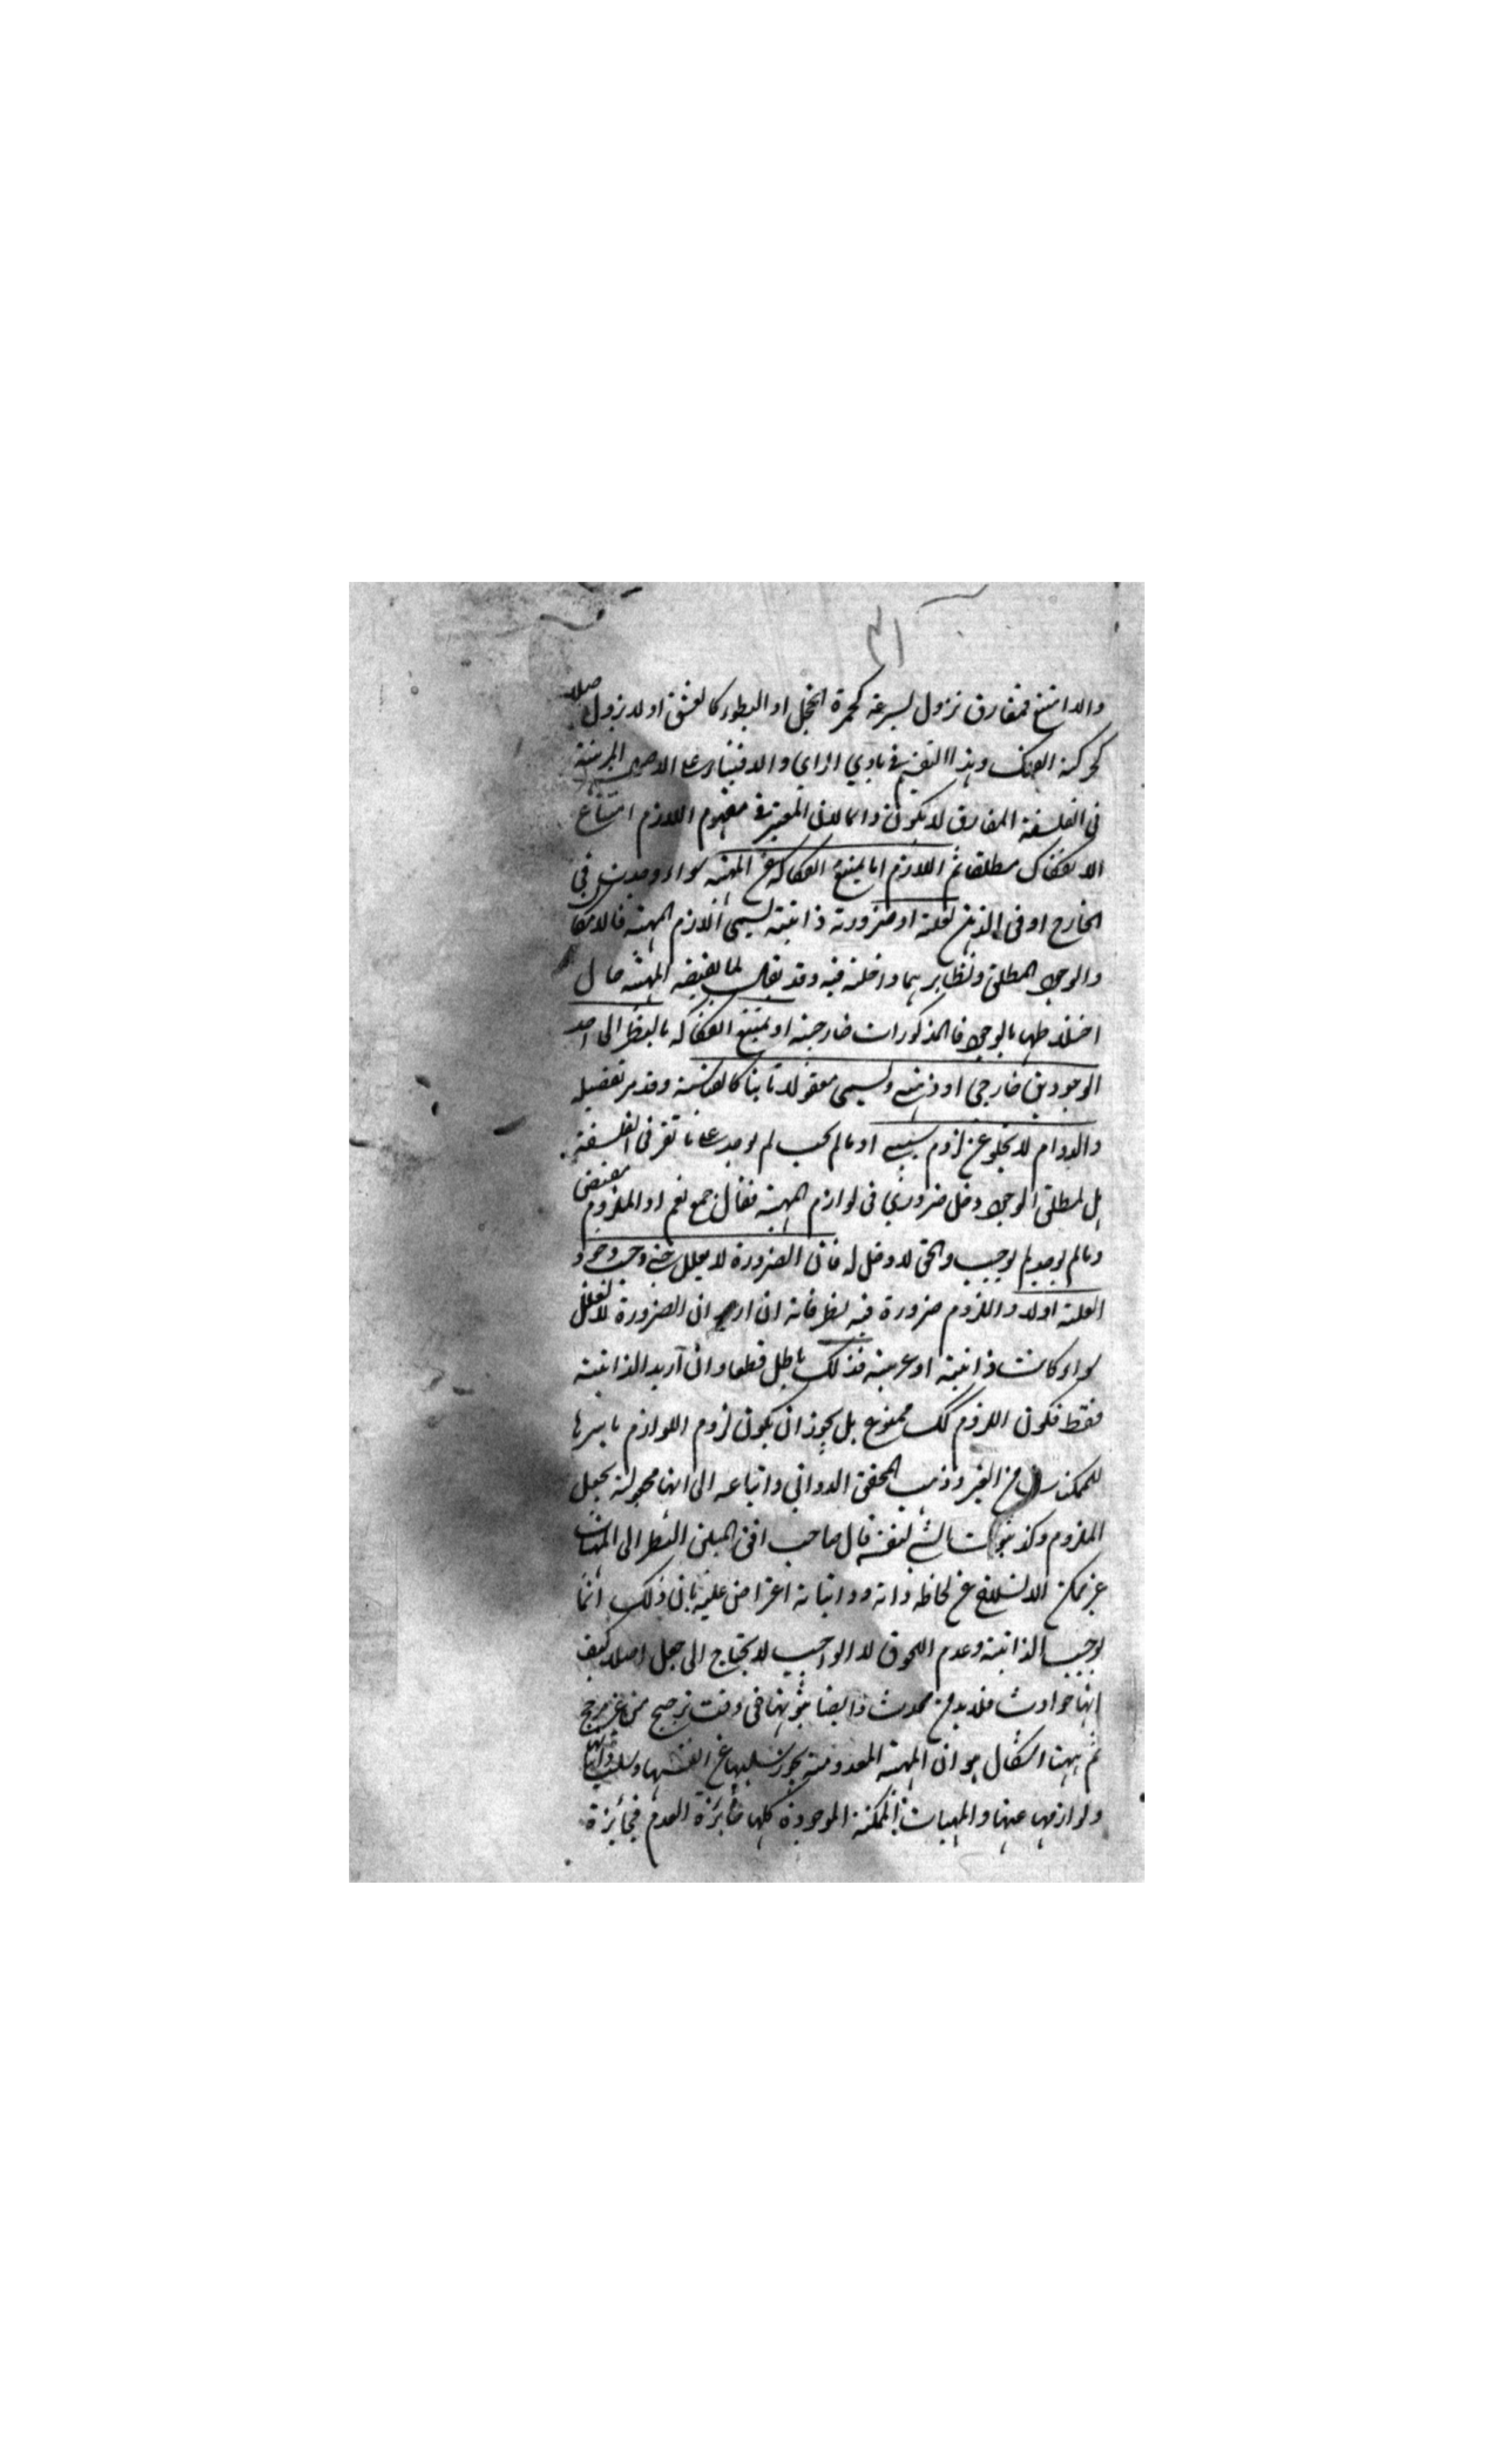 ٣١
والا امتنع فمفارق تزول بسرعة كحمرة الخجل او البطوء كالعشق او لا يزول اصلا
كحركة الفلك وهذا التقسيم في بادي الراي والا فبناء على الاصول
في الفلسفة المفارق لا يكون دائما لان المعتبر في مفهوم اللازم امتناع
الانفكاك مطلقا ثم اللازم اما يمتنع انفكاكه عن المهية سواء وجدت في
الخارج او في الذهن لعلة او ضرورة ذاتية يسمى لازم المهية فالامكان
والوجود المطلق ونظايرهما داخلة فيه وقد يقال لما يقتضيه المهية حال
اختلاطها بالوجود فالمذكورات خارجة او يمتنع انفكاكه بالنظر الى احد
الوجودين خارجي او ذهني ويسمى معقولا ثانيا كالكلية وقد مر تفصيله
والدوام لا يخلو عن لزوم سببي او ما لم يجب لم يوجد على ما تقرر في الفلسفة
هل لمطلق الوجود دخل ضروري في لوازم المهية فقال جمع نعم اذ الملزوم مقتضى
وما لم يوجد لم يوجب والحق لا دخل له فان الضرورة لا يعلل حتى وجب وجود
العلة اولا واللزوم ضرورة فيه نظر فانه ان اريد ان الضرورة لا تعلل
سواء كانت ذاتية او غيرية فذلك باطل قطعا وان اريد الذاتية
فقط فكون اللزوم كك ممنوع بل يجوز ان يكون لزوم اللوازم باسرها
للممكنات من الغير وذهب المحقق الدواني واتباعه الى انها مجعولة بجعل
الملزوم وكذا ثبوت الشئ لنفسه قال صاحب افق المبين النظر الى المهيات
غير ممكن الانسلاخ عن لحاظ ذاته وذاتياته اعتراض عليه بان ذلك انما
يوجب الذاتية وعدم اللحوق لا الواجب لا يحتاج الى جعل اصلا كيف
انها حوادث فلا بد من محدث وايضا ثبوتها في وقت ترجيح من غير مرجح
ثم ههنا اشكال هو ان المهية المعدومة يجوز سلبها عن انفسها وسلب ذاتياتها
ولوازمها عنها والمهيات الممكنة الموجودة كلها جائزة العدم فجائزة